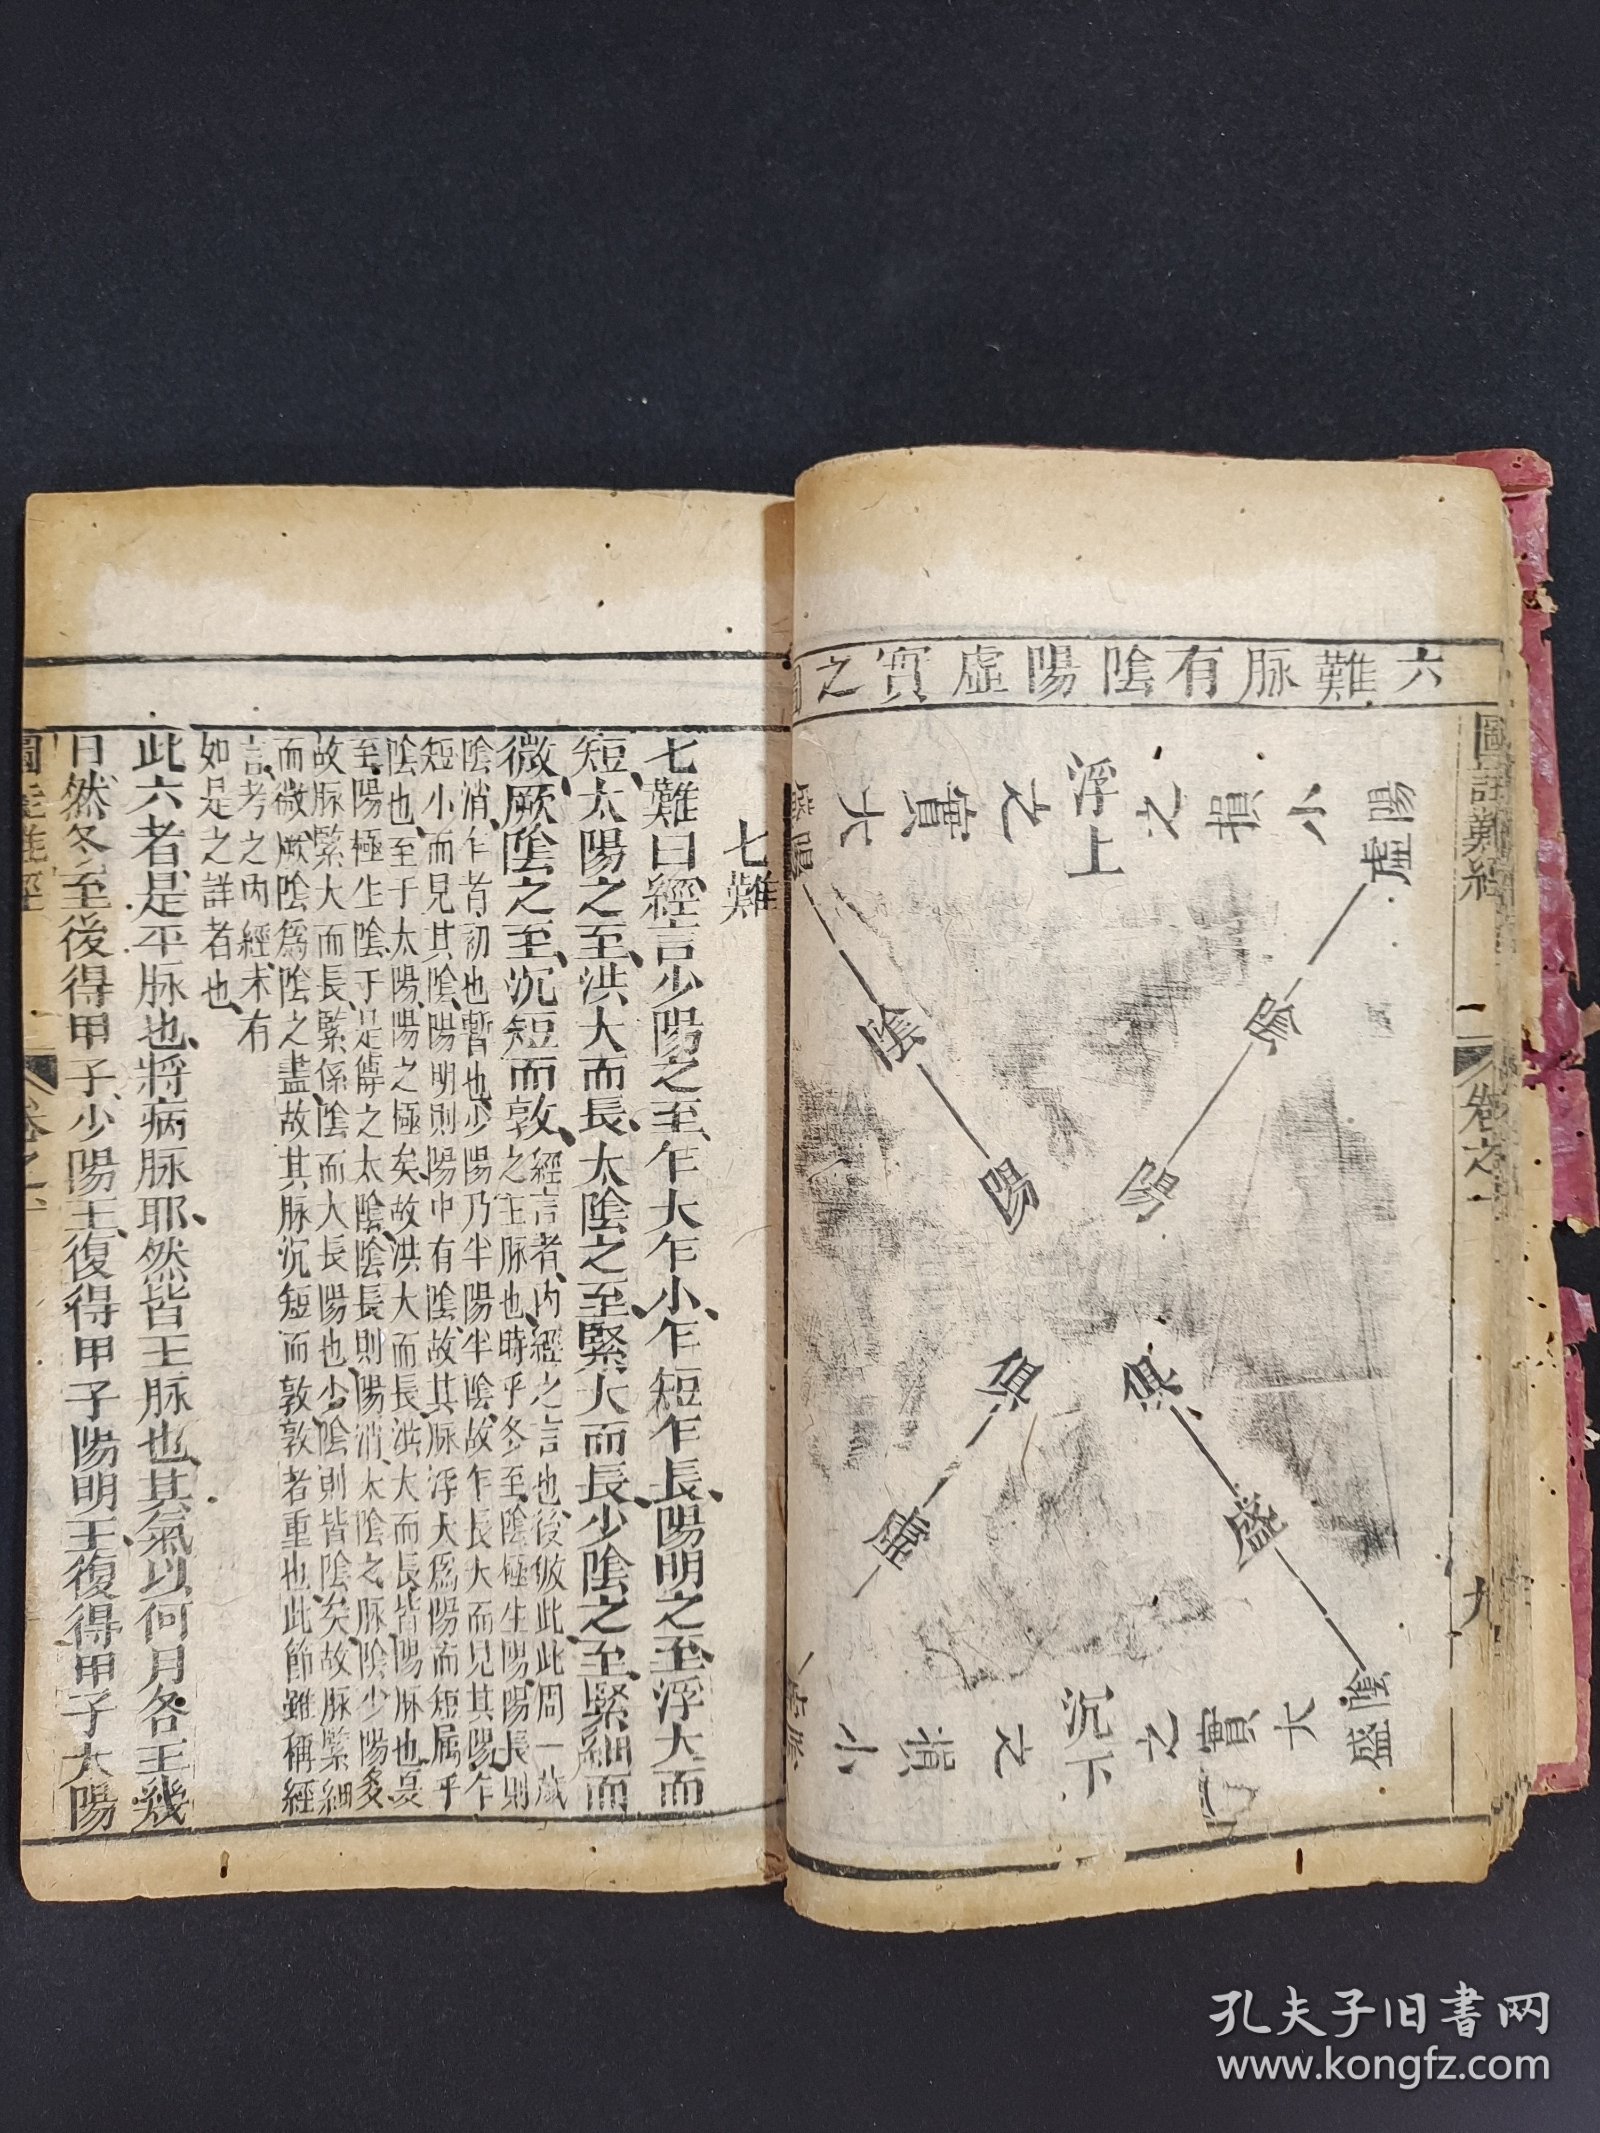 六難脉有陰陽虛實之圖
圖註難經
卷之一
九
陽虛
小
損
之
浮上
之
實
大
陰
陽
陰
陽
俱
盛
俱
虛
陰盛
大
實
之
沉下
之
損
小
七難
七難曰經言少陽之至乍大乍小乍短乍長陽明之至浮大而
短太陽之至洪大而長太陰之至緊大而長少陰之至緊細而
微厥陰之至沉短而敦
經言者内經之言也後倣此此周一歲
之王脉也時乎冬至陰極生陽陽長則
陰消乍者初也暫也少陽乃半陽半陰故乍長大而見其陽乍
短小而見其陰陽明則陽中有陰故其脉浮大爲陽而短屬乎
陰也至于太陽陽之極矣故洪大而長洪大而長皆陽脉也夏
至陽極生陰于是傳之太陰陰長則陽消太陰之脉陰少陽多
故脉緊大而長緊係陰而大長陽也少陰則皆陰矣故脉緊細
而微厥陰爲陰之盡故其脉沉短而敦敦者重也此節雖稱經
言考之内經未有
如是之詳者也
此六者是平脉也將病脉耶然皆王脉也其氣以何月各王幾
日然冬至後得甲子少陽王復得甲子陽明王復得甲子太陽
孔夫子旧书网
www.kongfz.com